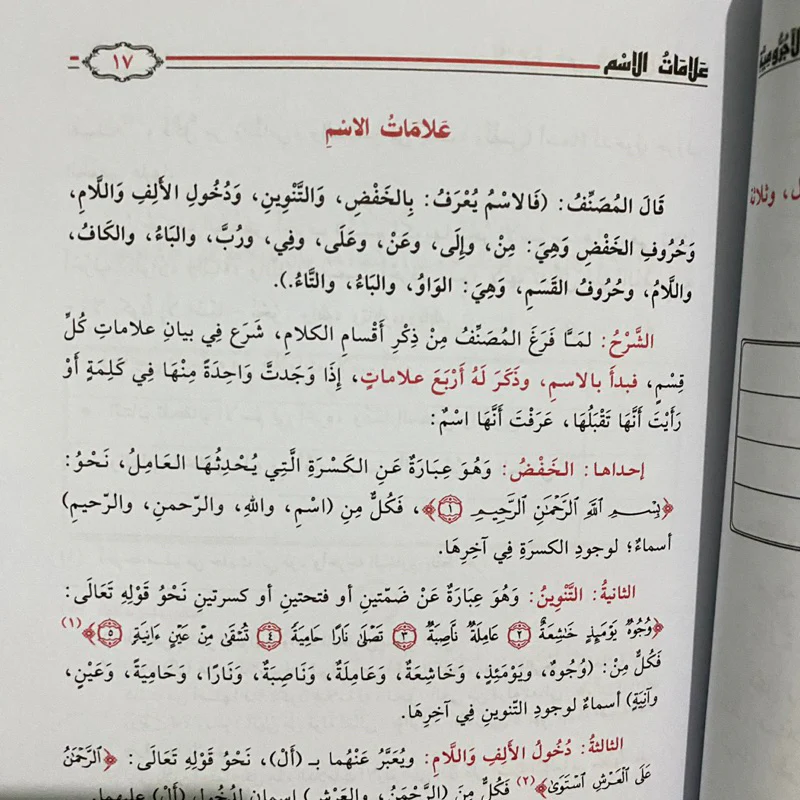 عَلَامَاتُ الِاسْم
١٧
عَلامَاتُ الاسْمِ
قَالَ المُصَنِّفُ: (فَالاسْمُ يُعْرَفُ: بِالخَفْضِ، وَالتَّنْوِينِ، وَدُخُولِ الأَلِفِ وَاللَّامِ،
وَحُرُوفِ الخَفْضِ وَهِيَ: مِنْ، وإِلَى، وَعَنْ، وَعَلَى، وَفِي، وَرُبَّ، وَالبَاءُ، وَالكَافُ،
واللَّامُ، وَحُرُوفُ القَسَمِ، وَهِيَ: الوَاوُ، وَالبَاءُ، وَالتَّاءُ.).
الشَّرْحُ: لمَّـا فَرَغَ المُصَنِّفُ مِنْ ذِكْرِ أَقْسامِ الكلامِ، شَرَعَ في بيانِ علاماتِ كُلِّ
قِسْمٍ، فبدأَ بالاسمِ، وذَكَرَ لَهُ أَرْبَعَ علاماتٍ، إِذَا وَجَدتَّ وَاحِدَةً مِنْهَا فِي كَلِمَةٍ أَوْ
رَأَيْتَ أَنَّهَا تَقْبَلُهَا، عَرَفْتَ أَنَّهَا اسْمٌ:
إحداها: الخَفْضُ: وَهُوَ عِبَارَةٌ عَنِ الكَسْرَةِ الَّتِي يُحْدِثُهَا العَامِلُ، نَحْوُ:
﴿بِسْمِ ٱللَّهِ ٱلرَّحْمَٰنِ ٱلرَّحِيمِ ١﴾، فَكُلٌّ مِنِ (اسْمِ، واللهِ، والرّحمنِ، والرّحيمِ)
أسماءٌ؛ لوجودِ الكسرَةِ فِي آخِرِهَا.
الثانيةُ: التَّنْوِينُ: وَهُوَ عِبَارَةٌ عَنْ ضَمّتينِ أو فتحتينِ أو كسرتينِ نَحْوُ قَوْلِهِ تَعَالَى:
﴿وُجُوهٌ يَوْمَئِذٍ خَٰشِعَةٌ ٢ عَامِلَةٌ نَّاصِبَةٌ ٣ تَصْلَىٰ نَارًا حَامِيَةً ٤ تُسْقَىٰ مِنْ عَيْنٍ ءَانِيَةٍ ٥﴾(١)
فَكُلٌّ مِنْ: (وُجُوهٌ، ويَوْمَئِذٍ، وَخَاشِعَةٌ، وَعَامِلَةٌ، وَنَاصِبَةٌ، وَنَارًا، وَحَامِيَةً، وَعَيْنٍ،
وآنِيَةٍ) أسماءٌ لوجودِ التّنوينِ في آخِرِهَا.
الثالثةُ: دُخُولُ الأَلِفِ وَاللَّامِ: ويُعَبَّرُ عَنْهُما بـ (أَلْ)، نَحْوُ قَوْلِهِ تَعَالَى: ﴿ٱلرَّحْمَٰنُ
عَلَى ٱلْعَرْشِ ٱسْتَوَىٰ﴾(٢) فَكُلٌّ مِنَ (الرَّحْمَنُ، والعَرْشِ) اسمانِ لدُخُولِ (أَلْ) عليهما.
ل، وثلاثة